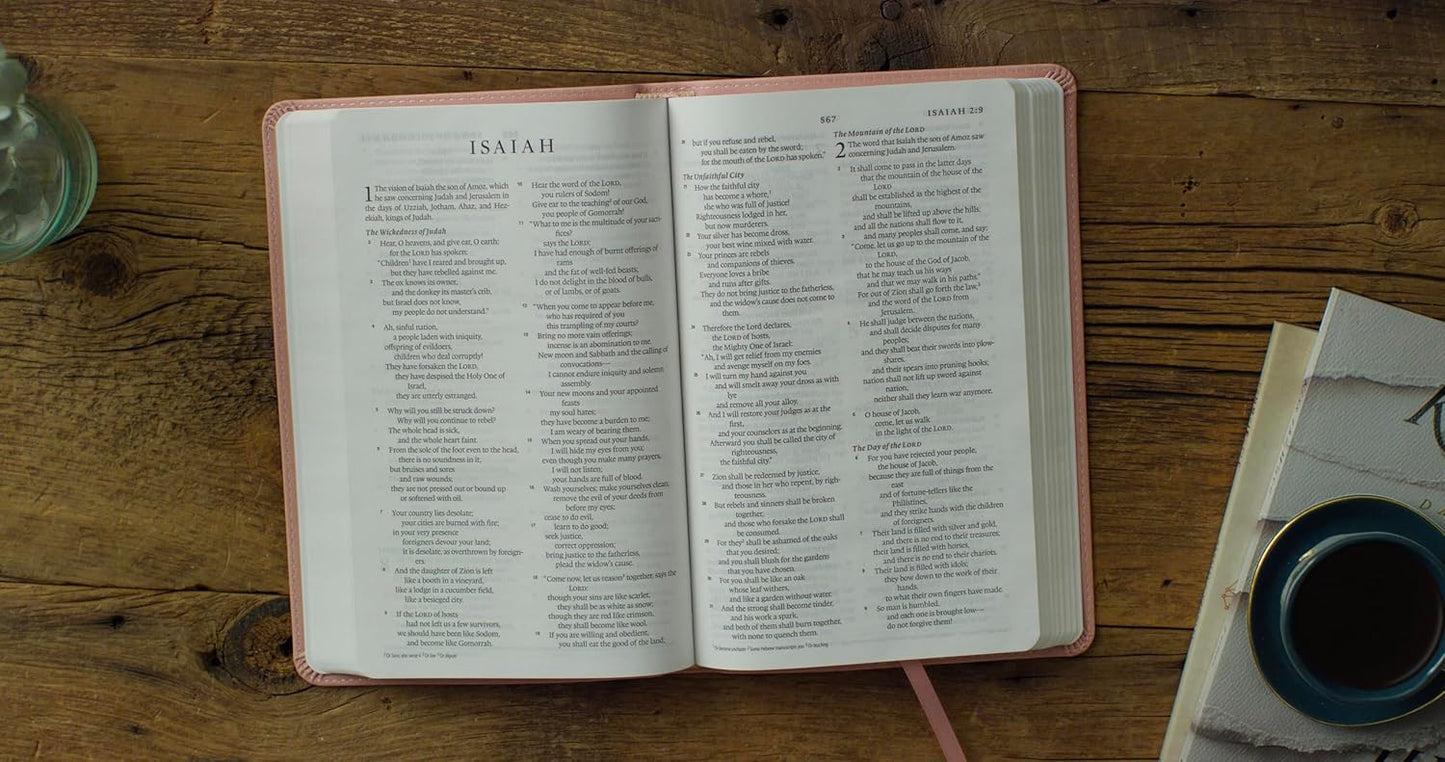 ISAIAH
1 The vision of Isaiah the son of Amoz, which
he saw concerning Judah and Jerusalem in
the days of Uzziah, Jotham, Ahaz, and Hez-
ekiah, kings of Judah.
The Wickedness of Judah
2 Hear, O heavens, and give ear, O earth;
for the LORD has spoken:
"Children¹ have I reared and brought up,
but they have rebelled against me.
3 The ox knows its owner,
and the donkey its master's crib,
but Israel does not know,
my people do not understand."
4 Ah, sinful nation,
a people laden with iniquity,
offspring of evildoers,
children who deal corruptly!
They have forsaken the LORD,
they have despised the Holy One of
Israel,
they are utterly estranged.
5 Why will you still be struck down?
Why will you continue to rebel?
The whole head is sick,
and the whole heart faint.
6 From the sole of the foot even to the head,
there is no soundness in it,
but bruises and sores
and raw wounds;
they are not pressed out or bound up
or softened with oil.
7 Your country lies desolate;
your cities are burned with fire;
in your very presence
foreigners devour your land;
it is desolate, as overthrown by foreign-
ers.
8 And the daughter of Zion is left
like a booth in a vineyard,
like a lodge in a cucumber field,
like a besieged city.
9 If the LORD of hosts
had not left us a few survivors,
we should have been like Sodom,
and become like Gomorrah.
10 Hear the word of the LORD,
you rulers of Sodom!
Give ear to the teaching² of our God,
you people of Gomorrah!
11 "What to me is the multitude of your sacri-
fices?
says the LORD;
I have had enough of burnt offerings of
rams
and the fat of well-fed beasts;
I do not delight in the blood of bulls,
or of lambs, or of goats.
12 "When you come to appear before me,
who has required of you
this trampling of my courts?
13 Bring no more vain offerings;
incense is an abomination to me.
New moon and Sabbath and the calling of
convocations—
I cannot endure iniquity and solemn
assembly.
14 Your new moons and your appointed
feasts
my soul hates;
they have become a burden to me;
I am weary of bearing them.
15 When you spread out your hands,
I will hide my eyes from you;
even though you make many prayers,
I will not listen;
your hands are full of blood.
16 Wash yourselves; make yourselves clean;
remove the evil of your deeds from
before my eyes;
cease to do evil,
17 learn to do good;
seek justice,
correct oppression;
bring justice to the fatherless,
plead the widow's cause.
18 "Come now, let us reason³ together, says the
LORD:
though your sins are like scarlet,
they shall be as white as snow;
though they are red like crimson,
they shall become like wool.
19 If you are willing and obedient,
you shall eat the good of the land;
567
ISAIAH 2:9
20 but if you refuse and rebel,
you shall be eaten by the sword;
for the mouth of the LORD has spoken."
The Unfaithful City
21 How the faithful city
has become a whore,¹
she who was full of justice!
Righteousness lodged in her,
but now murderers.
22 Your silver has become dross,
your best wine mixed with water.
23 Your princes are rebels
and companions of thieves.
Everyone loves a bribe
and runs after gifts.
They do not bring justice to the fatherless,
and the widow's cause does not come to
them.
24 Therefore the Lord declares,
the LORD of hosts,
the Mighty One of Israel:
"Ah, I will get relief from my enemies
and avenge myself on my foes.
25 I will turn my hand against you
and will smelt away your dross as with
lye
and remove all your alloy.
26 And I will restore your judges as at the
first,
and your counselors as at the beginning.
Afterward you shall be called the city of
righteousness,
the faithful city."
27 Zion shall be redeemed by justice,
and those in her who repent, by righ-
teousness.
28 But rebels and sinners shall be broken
together,
and those who forsake the LORD shall
be consumed.
29 For they² shall be ashamed of the oaks
that you desired;
and you shall blush for the gardens
that you have chosen.
30 For you shall be like an oak
whose leaf withers,
and like a garden without water.
31 And the strong shall become tinder,
and his work a spark,
and both of them shall burn together,
with none to quench them.
The Mountain of the LORD
2 The word that Isaiah the son of Amoz saw
concerning Judah and Jerusalem.
2 It shall come to pass in the latter days
that the mountain of the house of the
LORD
shall be established as the highest of the
mountains,
and shall be lifted up above the hills;
and all the nations shall flow to it,
3 and many peoples shall come, and say:
"Come, let us go up to the mountain of the
LORD,
to the house of the God of Jacob,
that he may teach us his ways
and that we may walk in his paths."
For out of Zion shall go forth the law,³
and the word of the LORD from
Jerusalem.
4 He shall judge between the nations,
and shall decide disputes for many
peoples;
and they shall beat their swords into plow-
shares,
and their spears into pruning hooks;
nation shall not lift up sword against
nation,
neither shall they learn war anymore.
5 O house of Jacob,
come, let us walk
in the light of the LORD.
The Day of the LORD
6 For you have rejected your people,
the house of Jacob,
because they are full of things from the
east
and of fortune-tellers like the
Philistines,
and they strike hands with the children
of foreigners.
7 Their land is filled with silver and gold,
and there is no end to their treasures;
their land is filled with horses,
and there is no end to their chariots.
8 Their land is filled with idols;
they bow down to the work of their
hands,
to what their own fingers have made.
9 So man is humbled,
and each one is brought low—
do not forgive them!